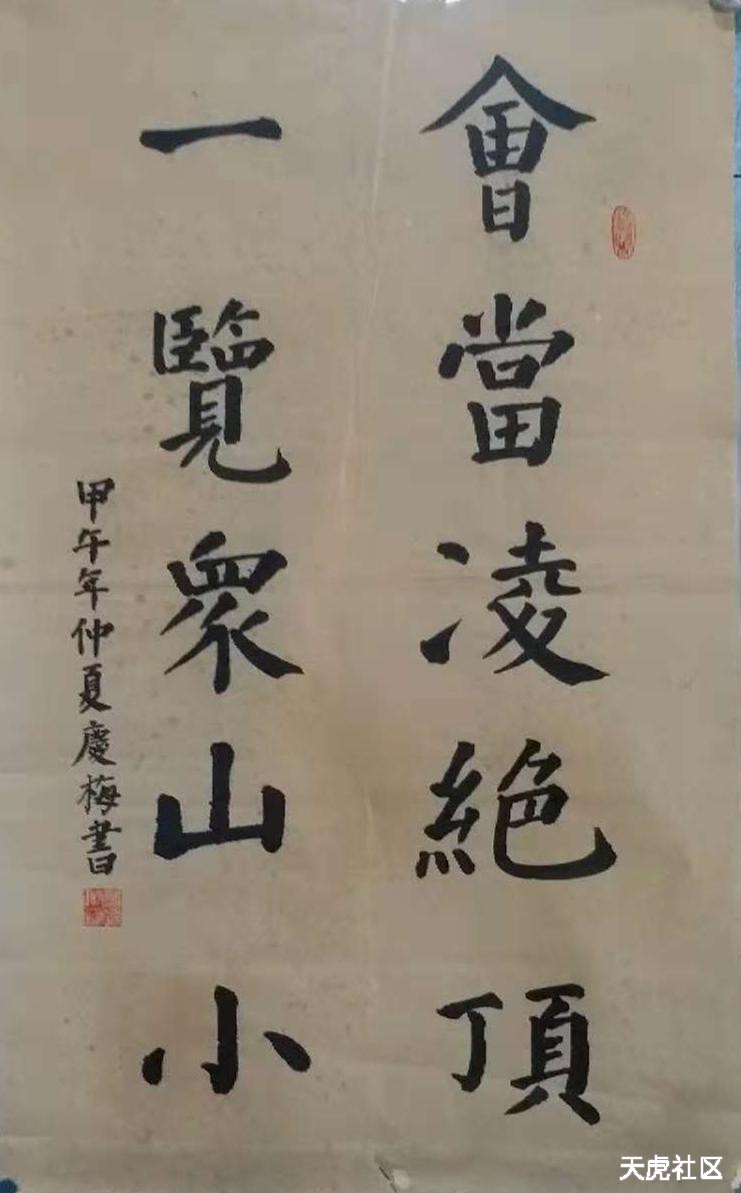 會當凌絕頂
一覽眾山小
甲午年仲夏慶梅書
天虎社区